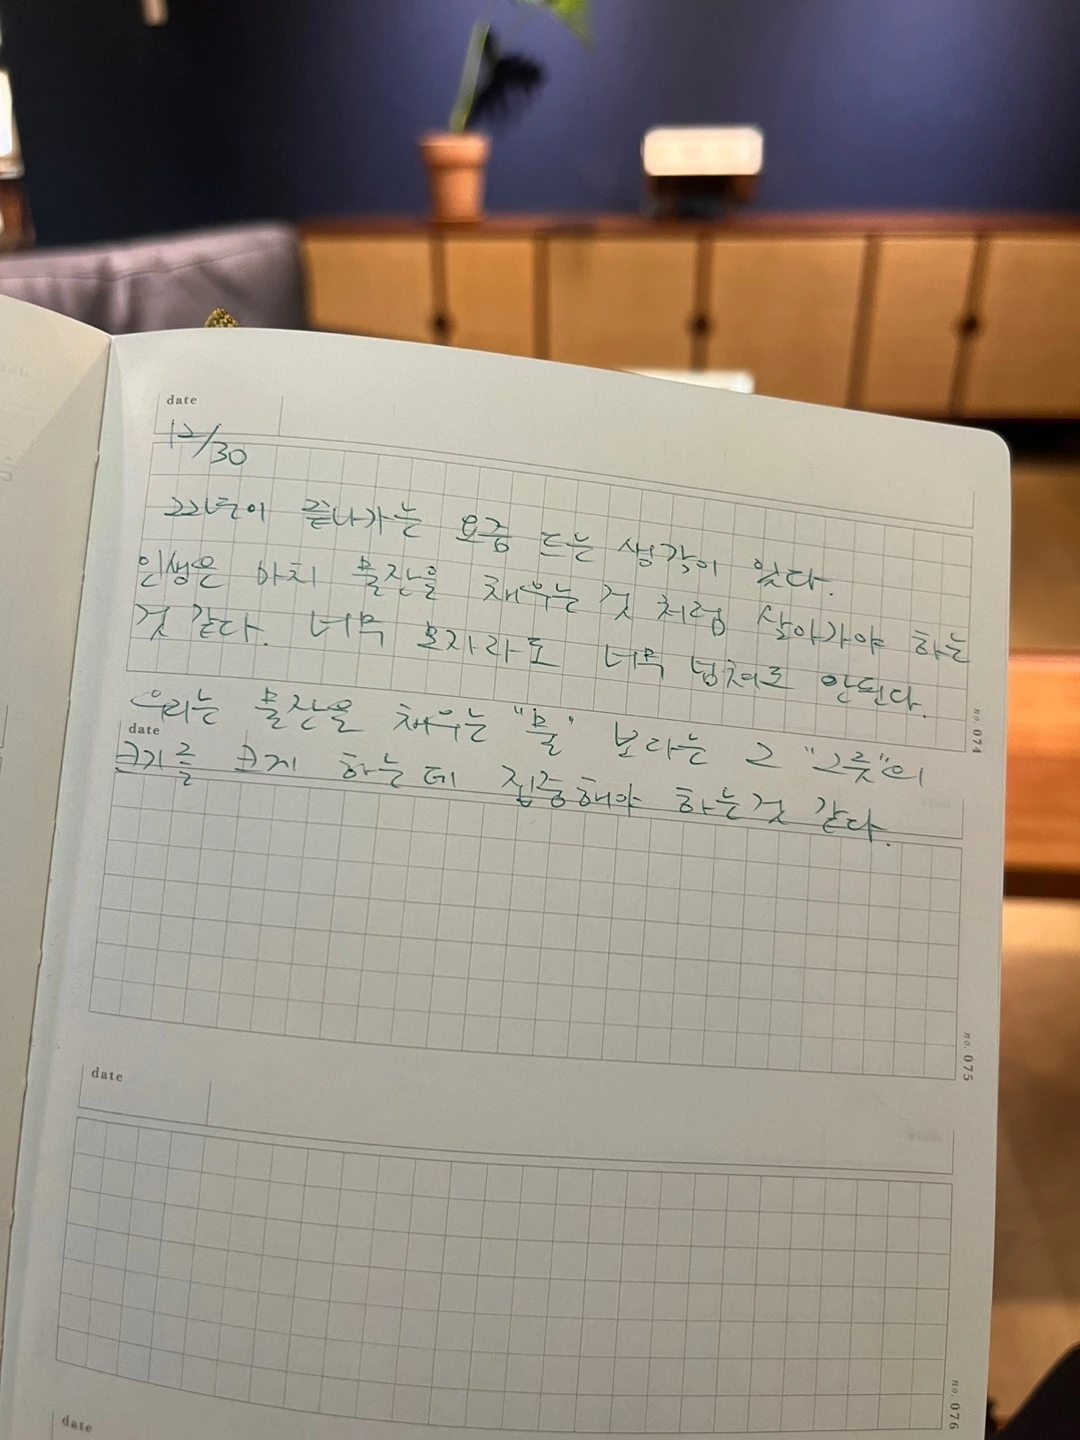 date
12/30
22년이 끝나가는 요즘 드는 생각이 있다.
인생은 마치 물잔을 채우는 것 처럼 살아가야 하는
것 같다. 너무 모자라도 너무 넘쳐도 안된다.
no. 074
우리는 물잔을 채우는 "물" 보다는 그 "그릇"의
date
크기를 크게 하는데 집중해야 하는것 같다.
no. 075
date
no. 076
date